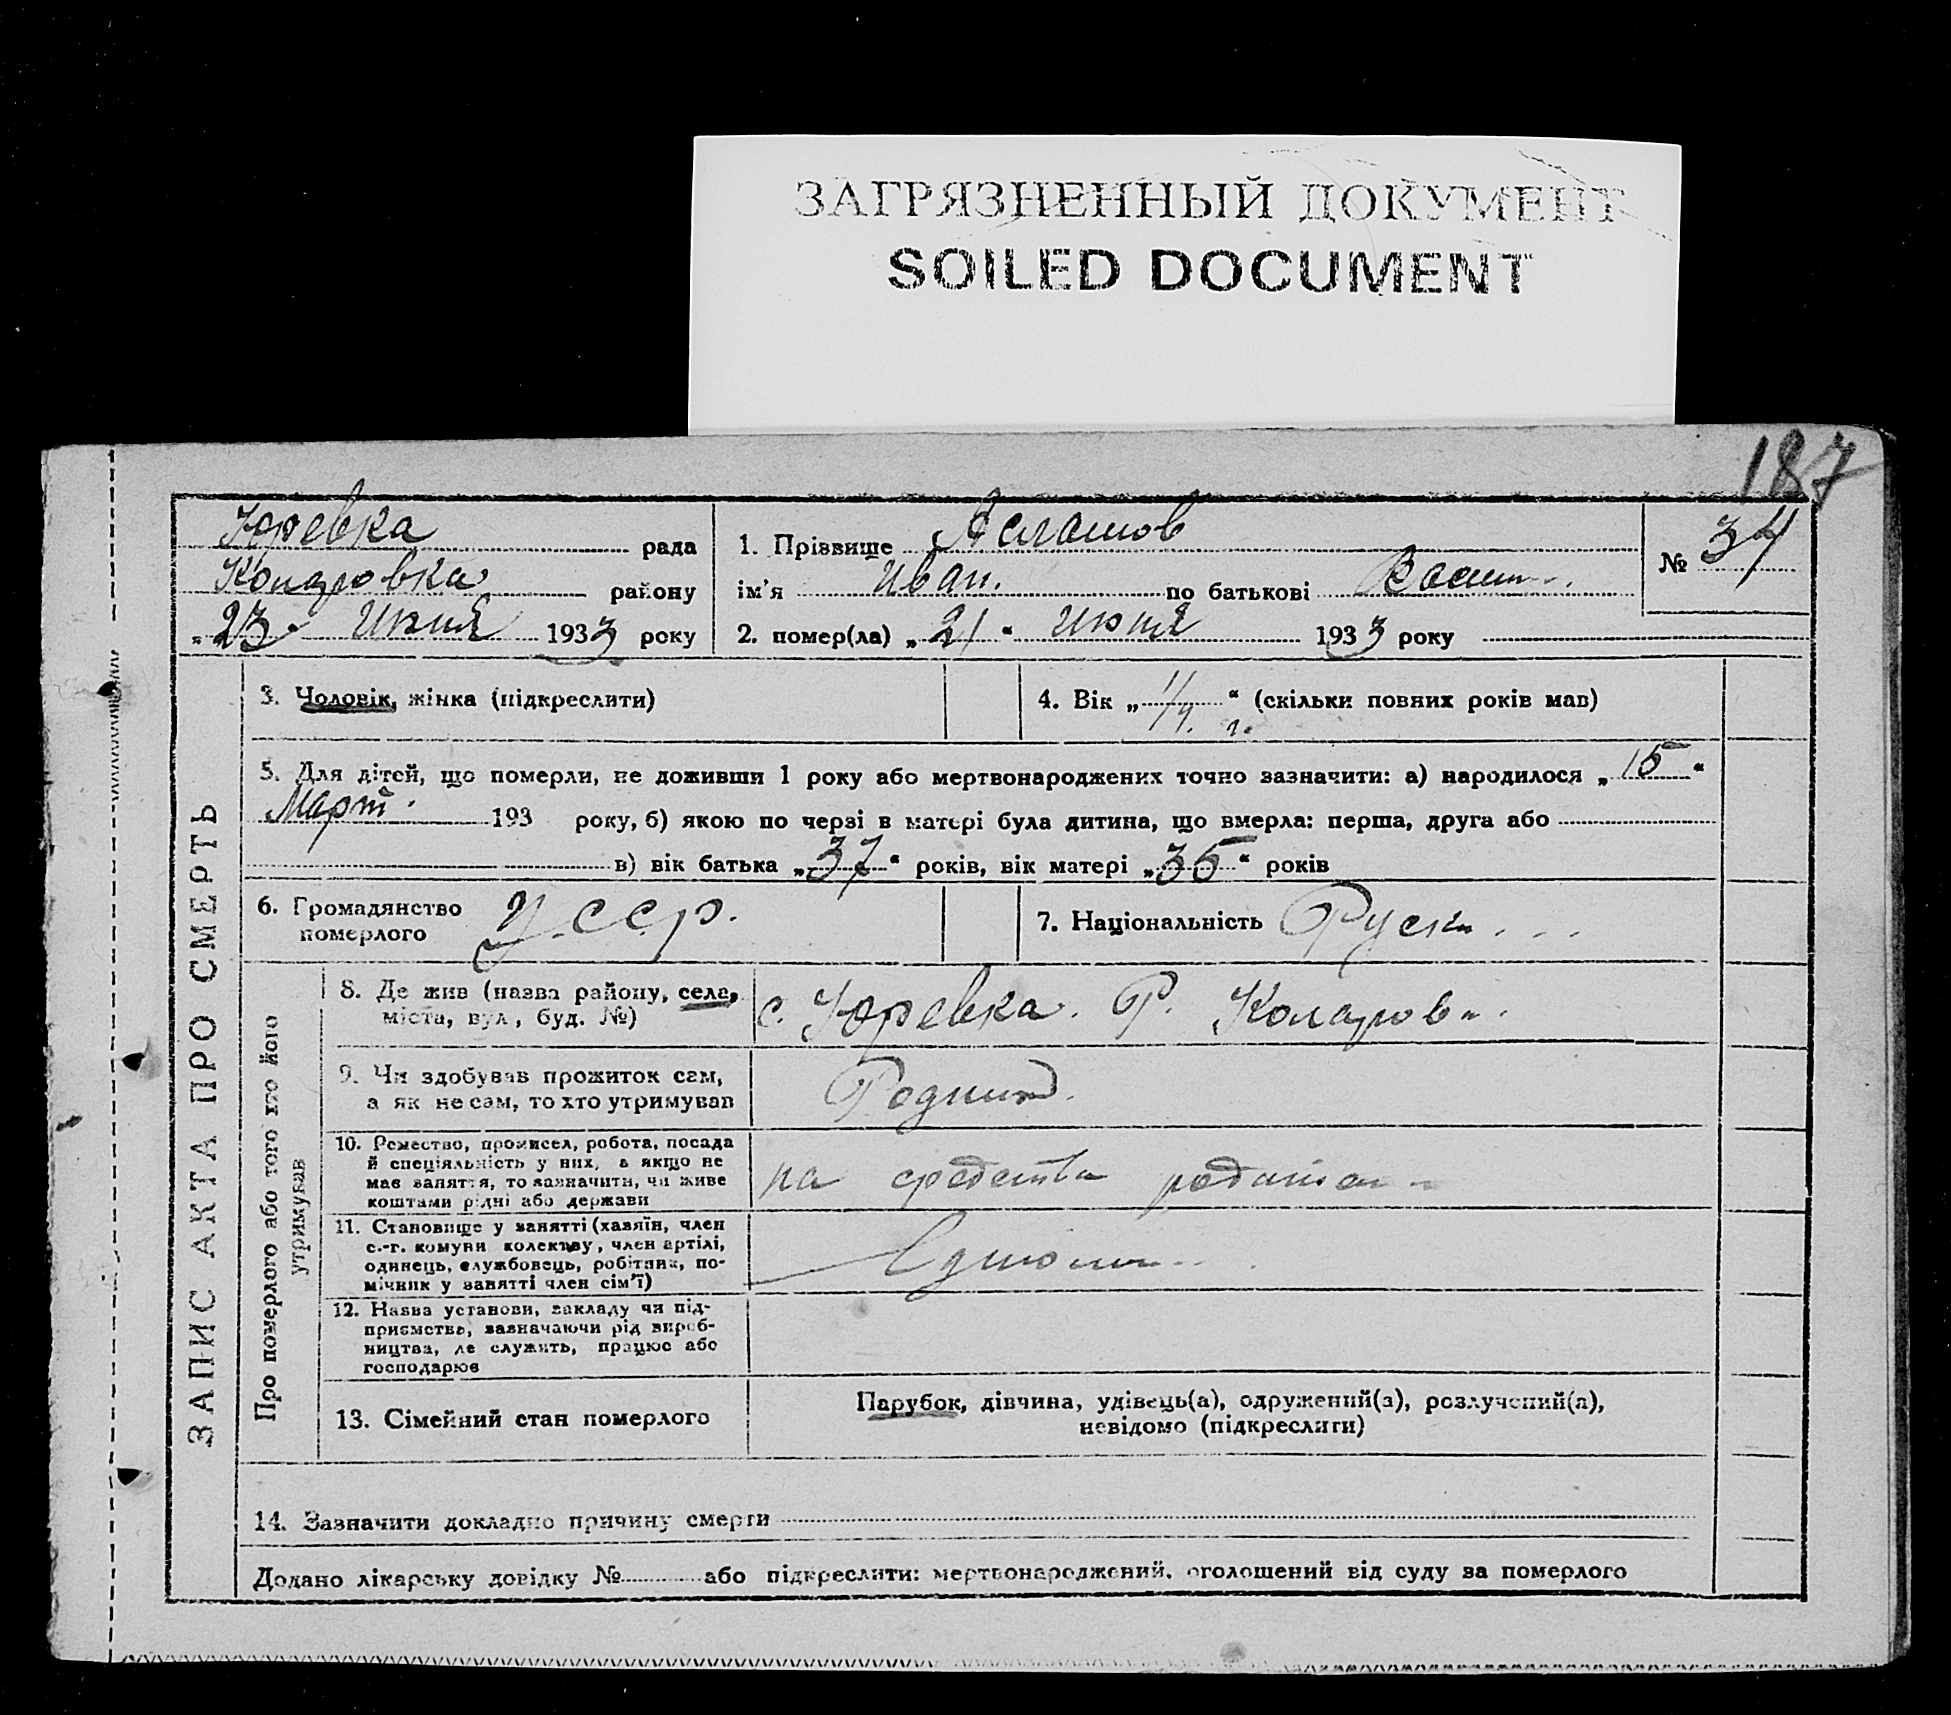 ЗАГРЯЗНЕННЫЙ ДОКУМЕНТ
SOILED DOCUMENT
187
Юревка рада
района
„23" Июня 1933 року
1. Прізвище Асламов
ім'я Иван. по батькові
2. помер(ла) „21" июня 1933 року
№ 34
ЗАПИС АКТА ПРО СМЕРТЬ
3. Чоловік, жінка (підкреслити)
4. Вік „1/4" г. (скільки повних років мав)
5. Для дітей, що померли, не доживши 1 року або мертвонароджених точно зазначити: а) народилося „15"
Март 193 року, б) якою по черзі в матері була дитина, що вмерла: перша, друга або
в) вік батька „37" років, вік матері „35" років
6. Громадянство
померлого
У.С.С.р.
7. Національність Руск...
Про померлого або того хто його
утримував
8. Де жив (назва району, села,
міста, вул., буд. №)
с. Юревка. Р. Коларов..
9. Чи здобував прожиток сам,
а як не сам, то хто утримував
10. Ремество, промисел, робота, посада
й спеціяльність у них, а якщо не
має заняття, то зазначити, чи живе
коштами рідні або держави
на средства
11. Становище у занятті (хазяїн, член
с.-г. комуни колективу, член артілі,
одинець, службовець, робітник, по-
мічник у занятті член сім'ї)
12. Назва установи, закладу чи під-
приємства, зазначаючи рід вироб-
ництва, де служить, працює або
господарює
13. Сімейний стан померлого
Парубок, дівчина, удівець(а), одружений(а), розлучений(а),
невідомо (підкреслити)
14. Зазначити докладно причину смерти
Додано лікарську довідку № або підкреслити: мертвонароджений, оголошений від суду за померлого